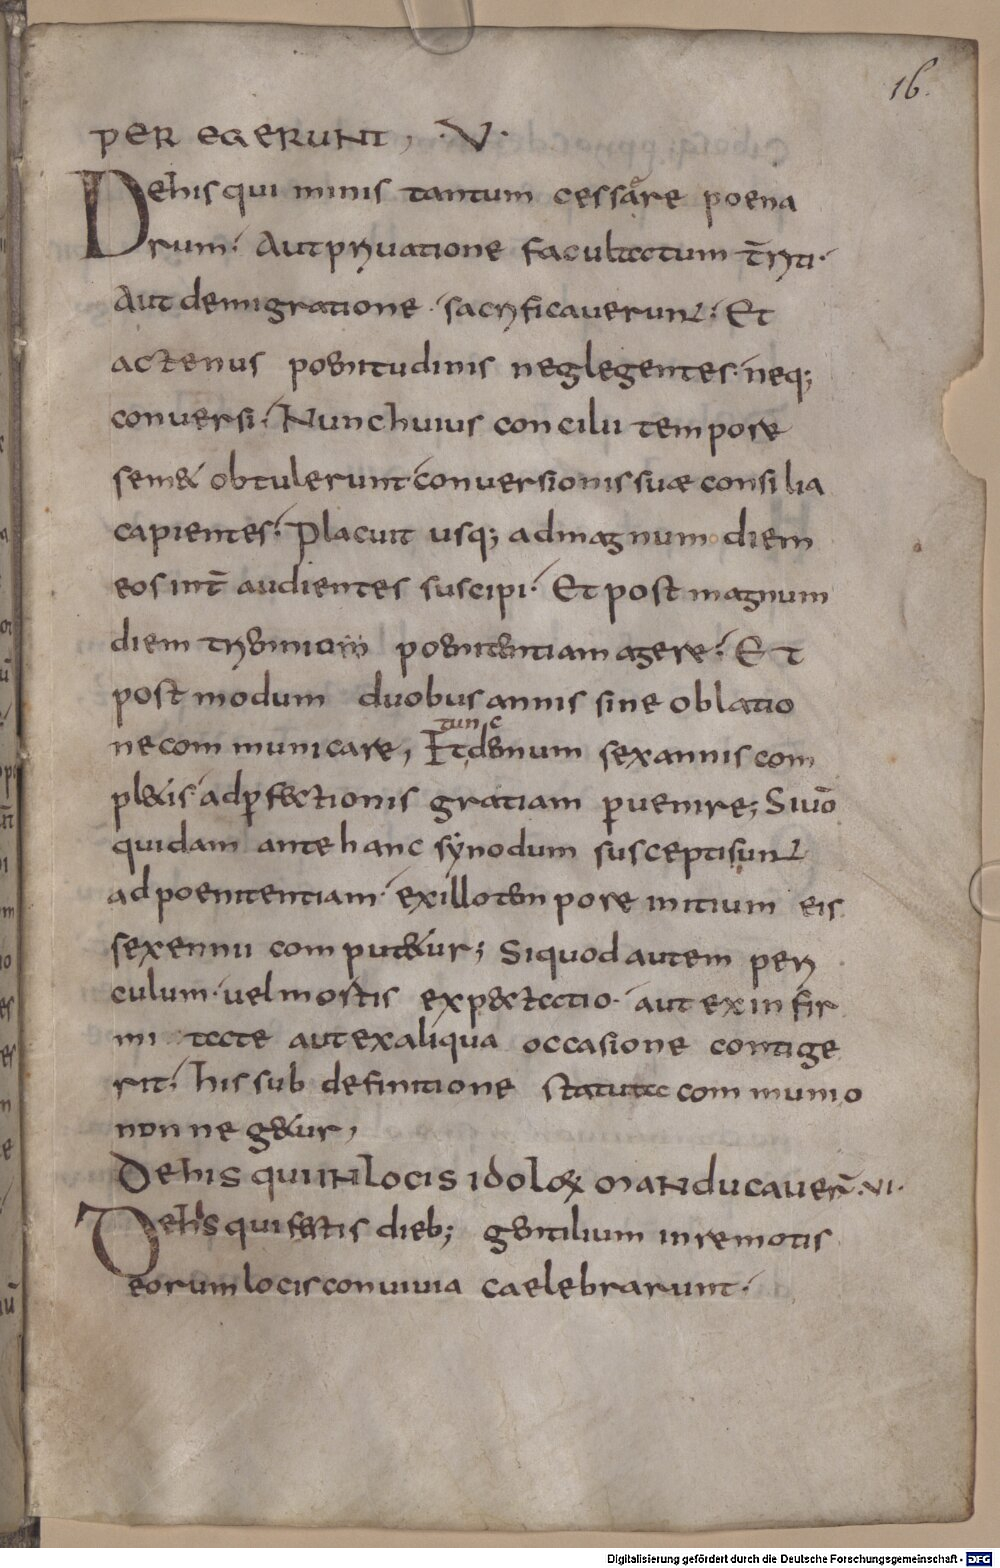 16.
PER EGERUNT, ·V·
Dehis qui minis tantum cessare poena
rum· Aut privatione facultatum t̄riti·
Aut demigratione· sacrificaverunt· Et
actenus poenitudinis neglegentes· neq;
conversi· Nunc huius concilii tempore
semet obtulerunt conversionis suæ consilia
capientes· Placuit usq; admagnum diem
eos int̄ audientes suscipi· Et post magnum
diem triennium poenitentiam agere· Et
post modum duobus annis sine oblatio
tunc
ne communicare, Et demum sex annis com
pletis ad p̱fectionis gratiam p̱venire; Sivō
quidam ante hanc synodum suscepti sunt
ad poenitentiam· ex illo tempore initium eis
sexennii computetur; Siquod autem peri
culum· vel mortis expectatio· aut ex infir
mitate aut ex aliqua occasione contige
rit· his sub definitione statuta communio
non negetur,
De his qui in locis idoloꝝ manducaver̄·VI·
De his qui festis dieb; gentilium in remotis
eorum locis convivia caelebrarunt·
Digitalisierung gefördert durch die Deutsche Forschungsgemeinschaft - DFG